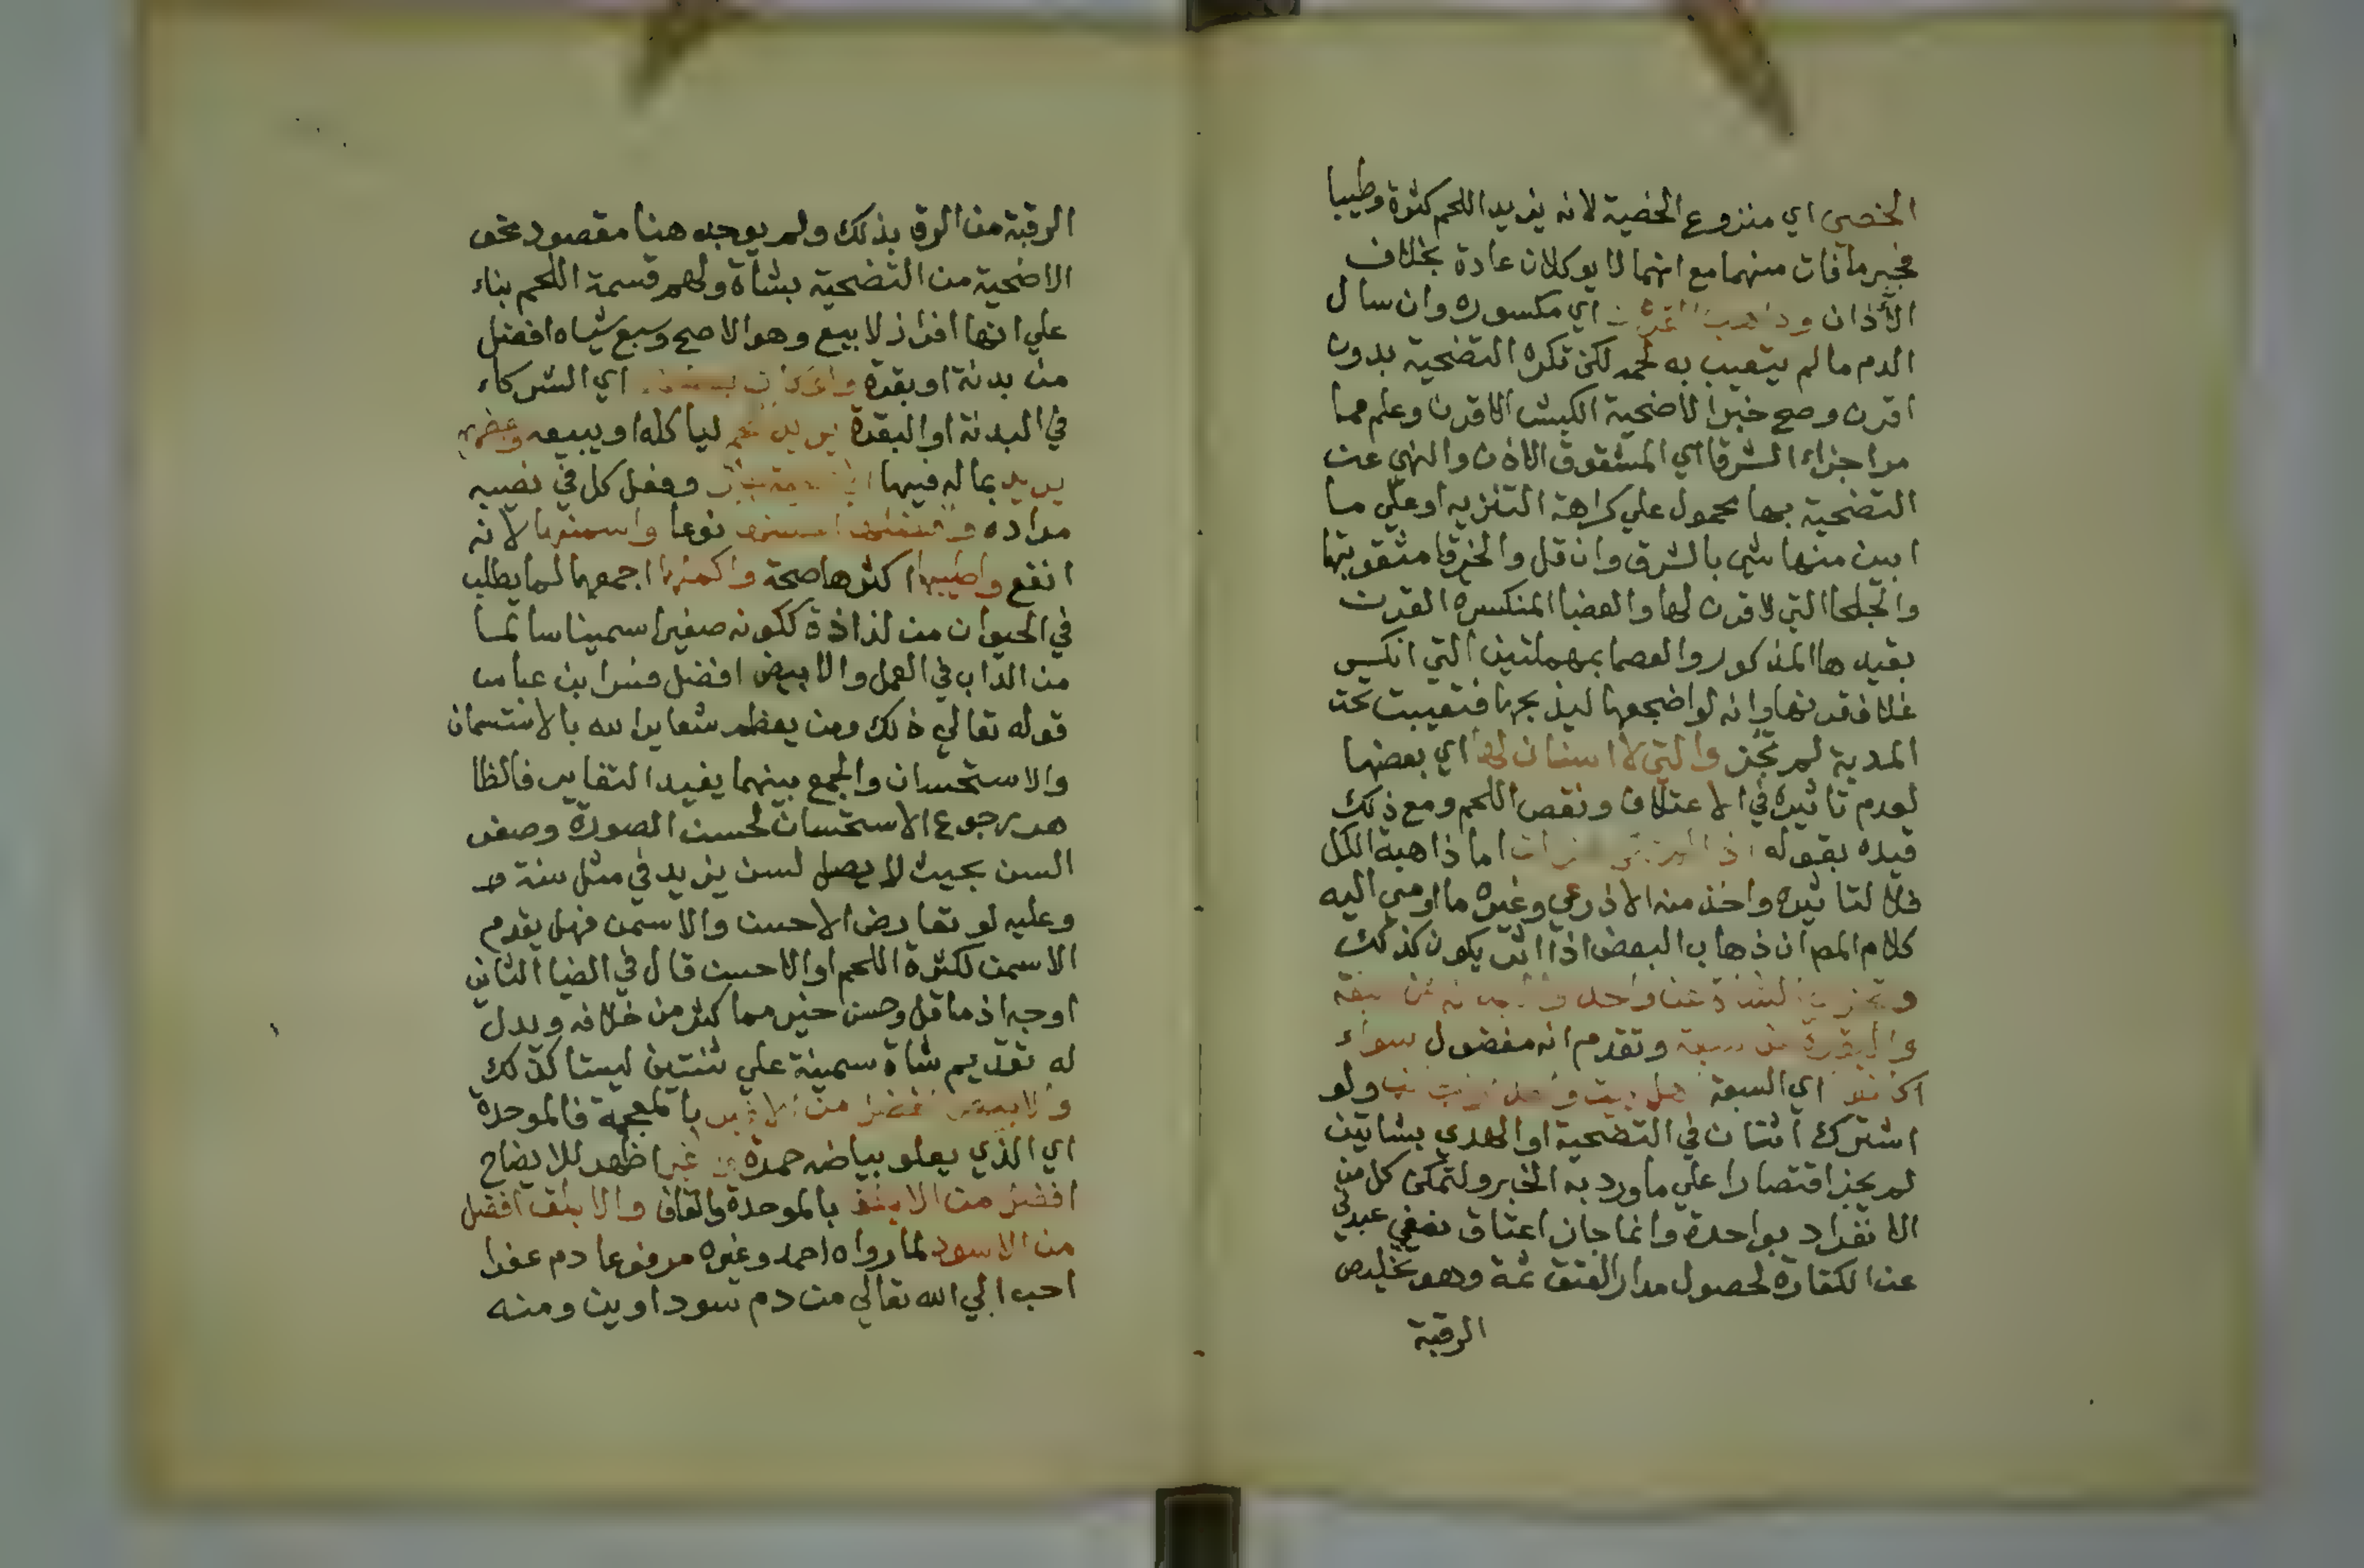 الخصى اي منزوع الخصية لانه يزيد اللحم كثرة وطيبا
فجبر ما فات منهما مع انهما لا يوكلان عادة بخلاف
الأذان اي مكسوره وان سال
الدم ما لم يتعيب به لحمه لكن تكره التضحية بدون
اقرن وصح خير الاضحية الكبش الاقرن وعلم مما
مر اجزاء الشرقا اي المشقوق الاذن والنهي عن
التضحية بها محمول علي كراهة التنزيه او علي ما
ابين منها شي بالشرق وان قل والخرقا مثقوبتها
والجلحا التي لا قرن لها والعضبا المنكسره القرن
بقيدها المذكور والعصما بمهملتين التي انكسر
غلاف قرنها وانه لو اضجعها ليذبحها فتعيبت تحت
المدية لم تجز والتي لا اسنان لها اي بعضها
لعدم تاثيره في الاعتلاف ونقص اللحم ومع ذلك
قيده بقوله اما ذاهبة الكل
فلا لتاثيره واخذ منه الاذرعي وغيره ما اومي اليه
كلام المص ان ذهاب البعض اذا اثر يكون كذلك
الشاة عن واحد
والبقرة عن سبعة وتقدم انه مفضول سواء
اكانوا اي السبعة اهل بيت ولو
اشترك اثنان في التضحية او الهدي بشاتين
لم يجز اقتصارا علي ما ورد به الخبر ولتمكن كل من
الانفراد بواحدة وانما جاز اعتاق نصفي عبدين
عن الكفارة لحصول مدار العتق ثمة وهو تخليص
الرقبة
الرقبة من الرق بذلك ولم يوجد هنا مقصود نحو
الاضحية من التضحية بشاة ولهم قسمة اللحم بناء
علي انها افراز لا بيع وهو الاصح وسبع شياه افضل
من بدنة او بقرة اي الشركاء
في البدنة او البقرة يريد لياكله او يبيعه وبعضهم
يريد بماله فيها وفعل كل في نصيبه
مراده نوعا واسمنها لانه
انفع واطيبها اكثرها صحة واكملها اجمعها لما يطلب
في الحيوان من لذاذة ككونه صغيرا سمينا سالما
من الداب في العمل والابيض افضل فسر ابن عباس
قوله تعالي ذلك ومن يعظم شعاير الله بالاستسمان
والاستحسان والجمع بينهما يفيد التغاير فالظا
هر رجوع الاستحسان لحسن الصورة وصغر
السن بحيث لا يصل لسن يزيد في مثل سنة
وعليه لو تعارض الاحسن والاسمن فهل يقدم
الاسمن لكثرة اللحم او الاحسن قال في الضيا الثاني
اوجه اذ ما قل وحسن خير مما كثر من خلافه ويدل
له تقديم شاة سمينة علي ثنتين ليستا كذلك
والابيض افضل من الاغبر بالمعجمة فالموحدة
اي الذي يعلو بياضه حمرة اظهر للايضاح
افضل من الابلق بالموحدة والقاف والابلق افضل
من الاسود لما رواه احمد وغيره مرفوعا دم عفرا
احب الي الله تعالي من دم سوداوين ومنه